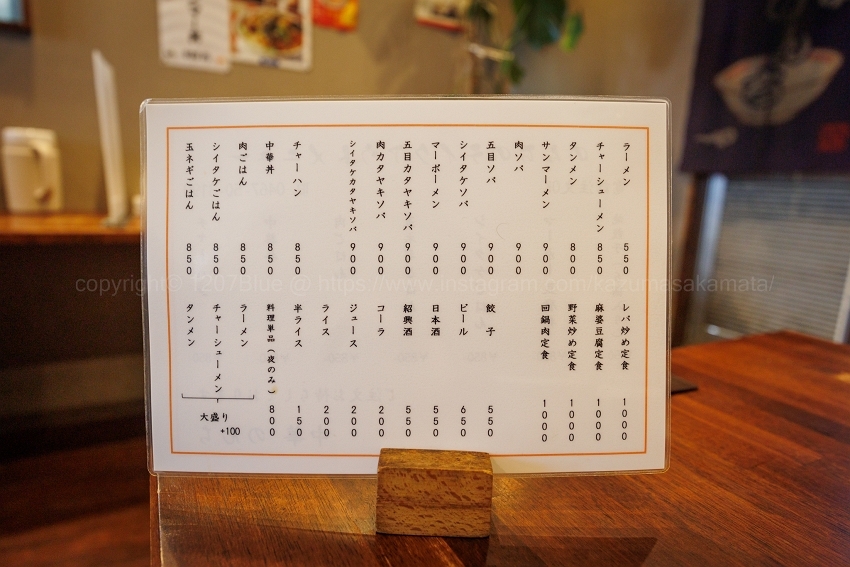 ラーメン 550
チャーシューメン 850
タンメン 800
サンマーメン 900
肉ソバ 900
五目ソバ 900
シイタケソバ 900
マーボーメン 900
五目カタヤキソバ 900
肉カタヤキソバ 900
シイタケカタヤキソバ 900
チャーハン 850
中華丼 850
肉ごはん 850
シイタケごはん 850
玉ネギごはん 850
レバ炒め定食 1000
麻婆豆腐定食 1000
野菜炒め定食 1000
回鍋肉定食 1000
餃子 550
ビール 650
日本酒 550
紹興酒 550
コーラ 200
ジュース 200
ライス 200
半ライス 150
料理単品(夜のみ) 800
ラーメン
チャーシューメン
タンメン
大盛り
+100
copyright© 1207Blue @ https://www.instagram.com/kazumasakamata/